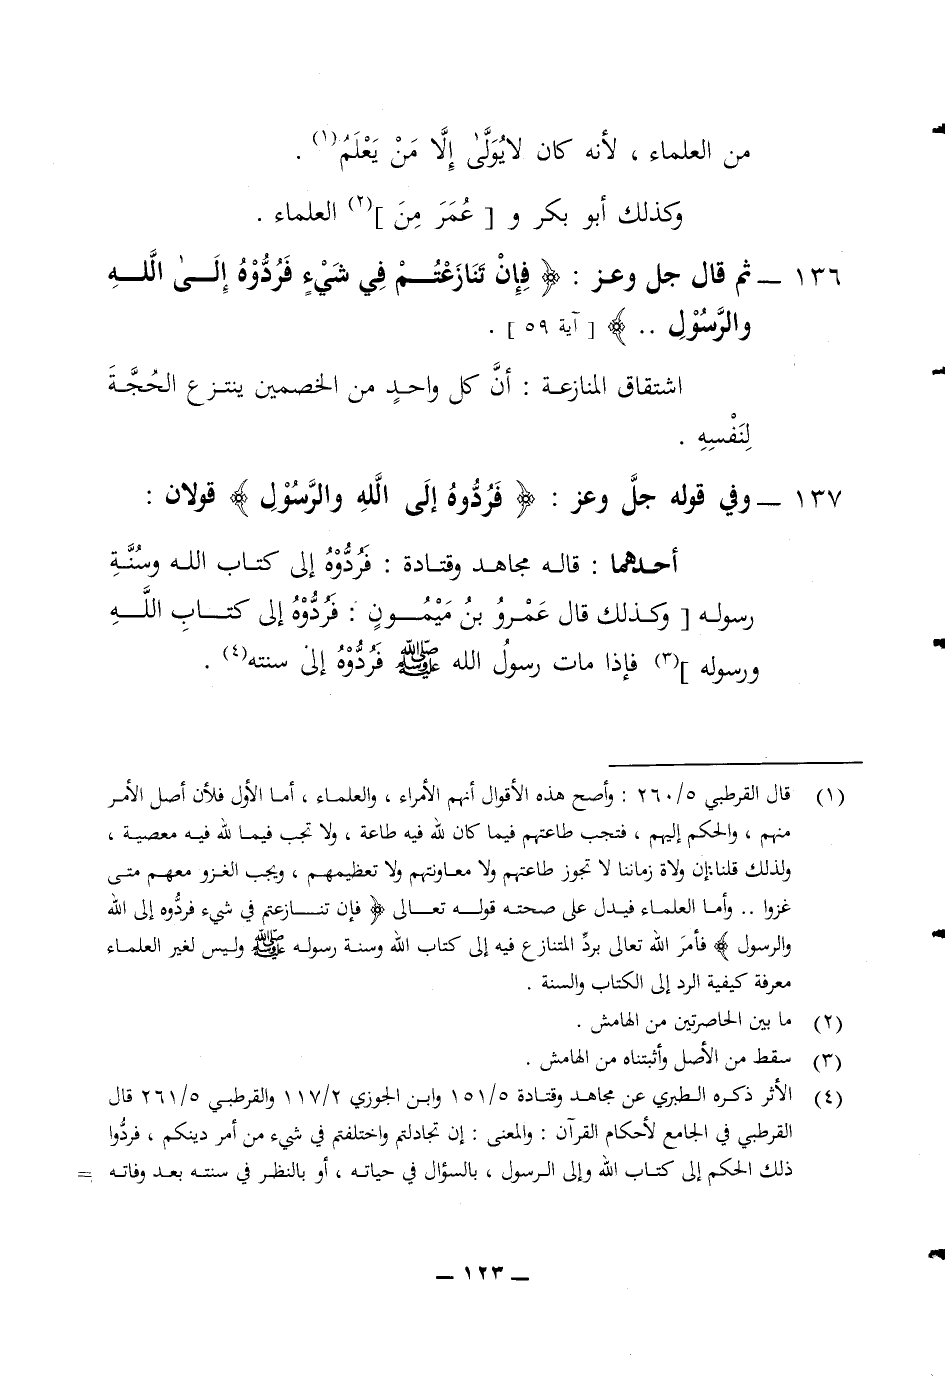 من العلماء ، لأنه كان لايُوَلَّىٰ إِلَّا مَنْ يَعْلَمُ(١) .
وكذلك أبو بكر و [ عُمَرَ مِنَ ](٢) العلماء .
١٣٦ ــ ثم قال جل وعز : ﴿ فَإِنْ تَنَازَعْتُمْ فِي شَيْءٍ فَرُدُّوْهُ إِلَىٰ اللَّهِ
والرَّسُوْلِ .. ﴾ [ آية ٥٩ ] .
اشتقاق المنازعة : أنَّ كل واحدٍ من الخصمين ينتزع الحُجَّةَ
لِنَفْسِهِ .
١٣٧ ــ وفي قوله جلَّ وعز : ﴿ فَرُدُّوهُ إلَى اللَّهِ والرَّسُوْلِ ﴾ قولان :
أحدهما : قاله مجاهد وقتادة : فَرُدُّوْهُ إلى كتاب الله وسُنَّةِ
رسوله [ وكذلك قال عَمْرُو بنُ مَيْمُونٍ : فَرُدُّوْهُ إلى كتابِ اللَّهِ
ورسوله ](٣) فإذا مات رسولُ الله ﷺ فَرُدُّوْهُ إلىٰ سنته(٤) .
(١) قال القرطبي ٢٦٠/٥ : وأصح هذه الأقوال أنهم الأمراء ، والعلماء ، أما الأول فلأن أصل الأمر
منهم ، والحكم إليهم ، فتجب طاعتهم فيما كان لله فيه طاعة ، ولا تجب فيما لله فيه معصية ،
ولذلك قلنا:إن ولاة زماننا لا تجوز طاعتهم ولا معاونتهم ولا تعظيمهم ، ويجب الغزو معهم متى
غزوا .. وأما العلماء فيدل على صحته قوله تعالى ﴿ فإن تنازعتم في شيء فردُّوه إلى الله
والرسول ﴾ فأمرَ الله تعالى بردِّ المتنازع فيه إلى كتاب الله وسنة رسوله ﷺ وليس لغير العلماء
معرفة كيفية الرد إلى الكتاب والسنة .
(٢) ما بين الحاصرتين من الهامش .
(٣) سقط من الأصل وأثبتناه من الهامش .
(٤) الأثر ذكره الطبري عن مجاهد وقتادة ١٥١/٥ وابن الجوزي ١١٧/٢ والقرطبي ٢٦١/٥ قال
القرطبي في الجامع لأحكام القرآن : والمعنى : إن تجادلتم واختلفتم في شيء من أمر دينكم ، فردُّوا
ذلك الحكم إلى كتاب الله وإلى الرسول ، بالسؤال في حياته ، أو بالنظر في سنته بعد وفاته =
ــ ١٢٣ ــ